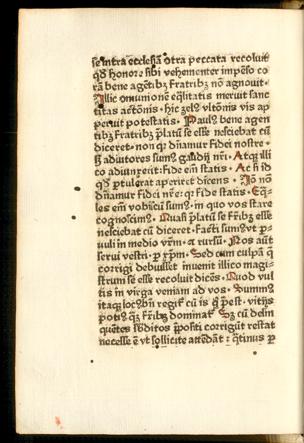 se intra ecclesiā otra peccata recoluit
qđ honore sibi vehementer impēso co
rā bene agētibꝫ fratribꝫ nō agnouit.
Illic omnium one eqlitatis meruit sanc
titas actōnis. hic zelꝰ vltōnis vis ap
peruit potestatis. Paulꝰ bene agen
tibꝫ fratribꝫ p̄latū se esse nesciebat cū
diceret. non qꝛ dn̄amur fidei nostre.
sꝫ adiutores sumꝰ gaudij nr̄i. Atqꝫ illi
co adiunxit: fide em̄ statis. Ac si id
qđ p̄tulerat aperiret dicens. Iō nō
dn̄amur fidei nr̄e: qꝛ fide statis. Eq̄
les em̄ vobiscū sumꝰ. in quo vos stare
cognoscimꝰ. Quasi p̄latū se fr̄ibꝫ esse
nesciebat cū diceret. Facti sumꝰ vt p̱
uuli in medio vr̄m. a rursū. Nos aūt
serui vestri. ꝑ xp̄m. Sed cum culpā q̄
corrigi debuisset inuenit illico magi
strum se esse recoluit dicēs. Quod vul
tis in virga veniam ad vos. Summꝰ
itaqꝫ locꝰ bn̄ regit᷑ cū is q̄ p̄est. vitijs
potiꝰ qꝫ fr̄ibꝫ dominat᷑. Sꝫ cū delin
quētes sbditos p̄positi corrigūt restat
necesse ē vt sollicite attēdāt: q̄tinus ꝑ